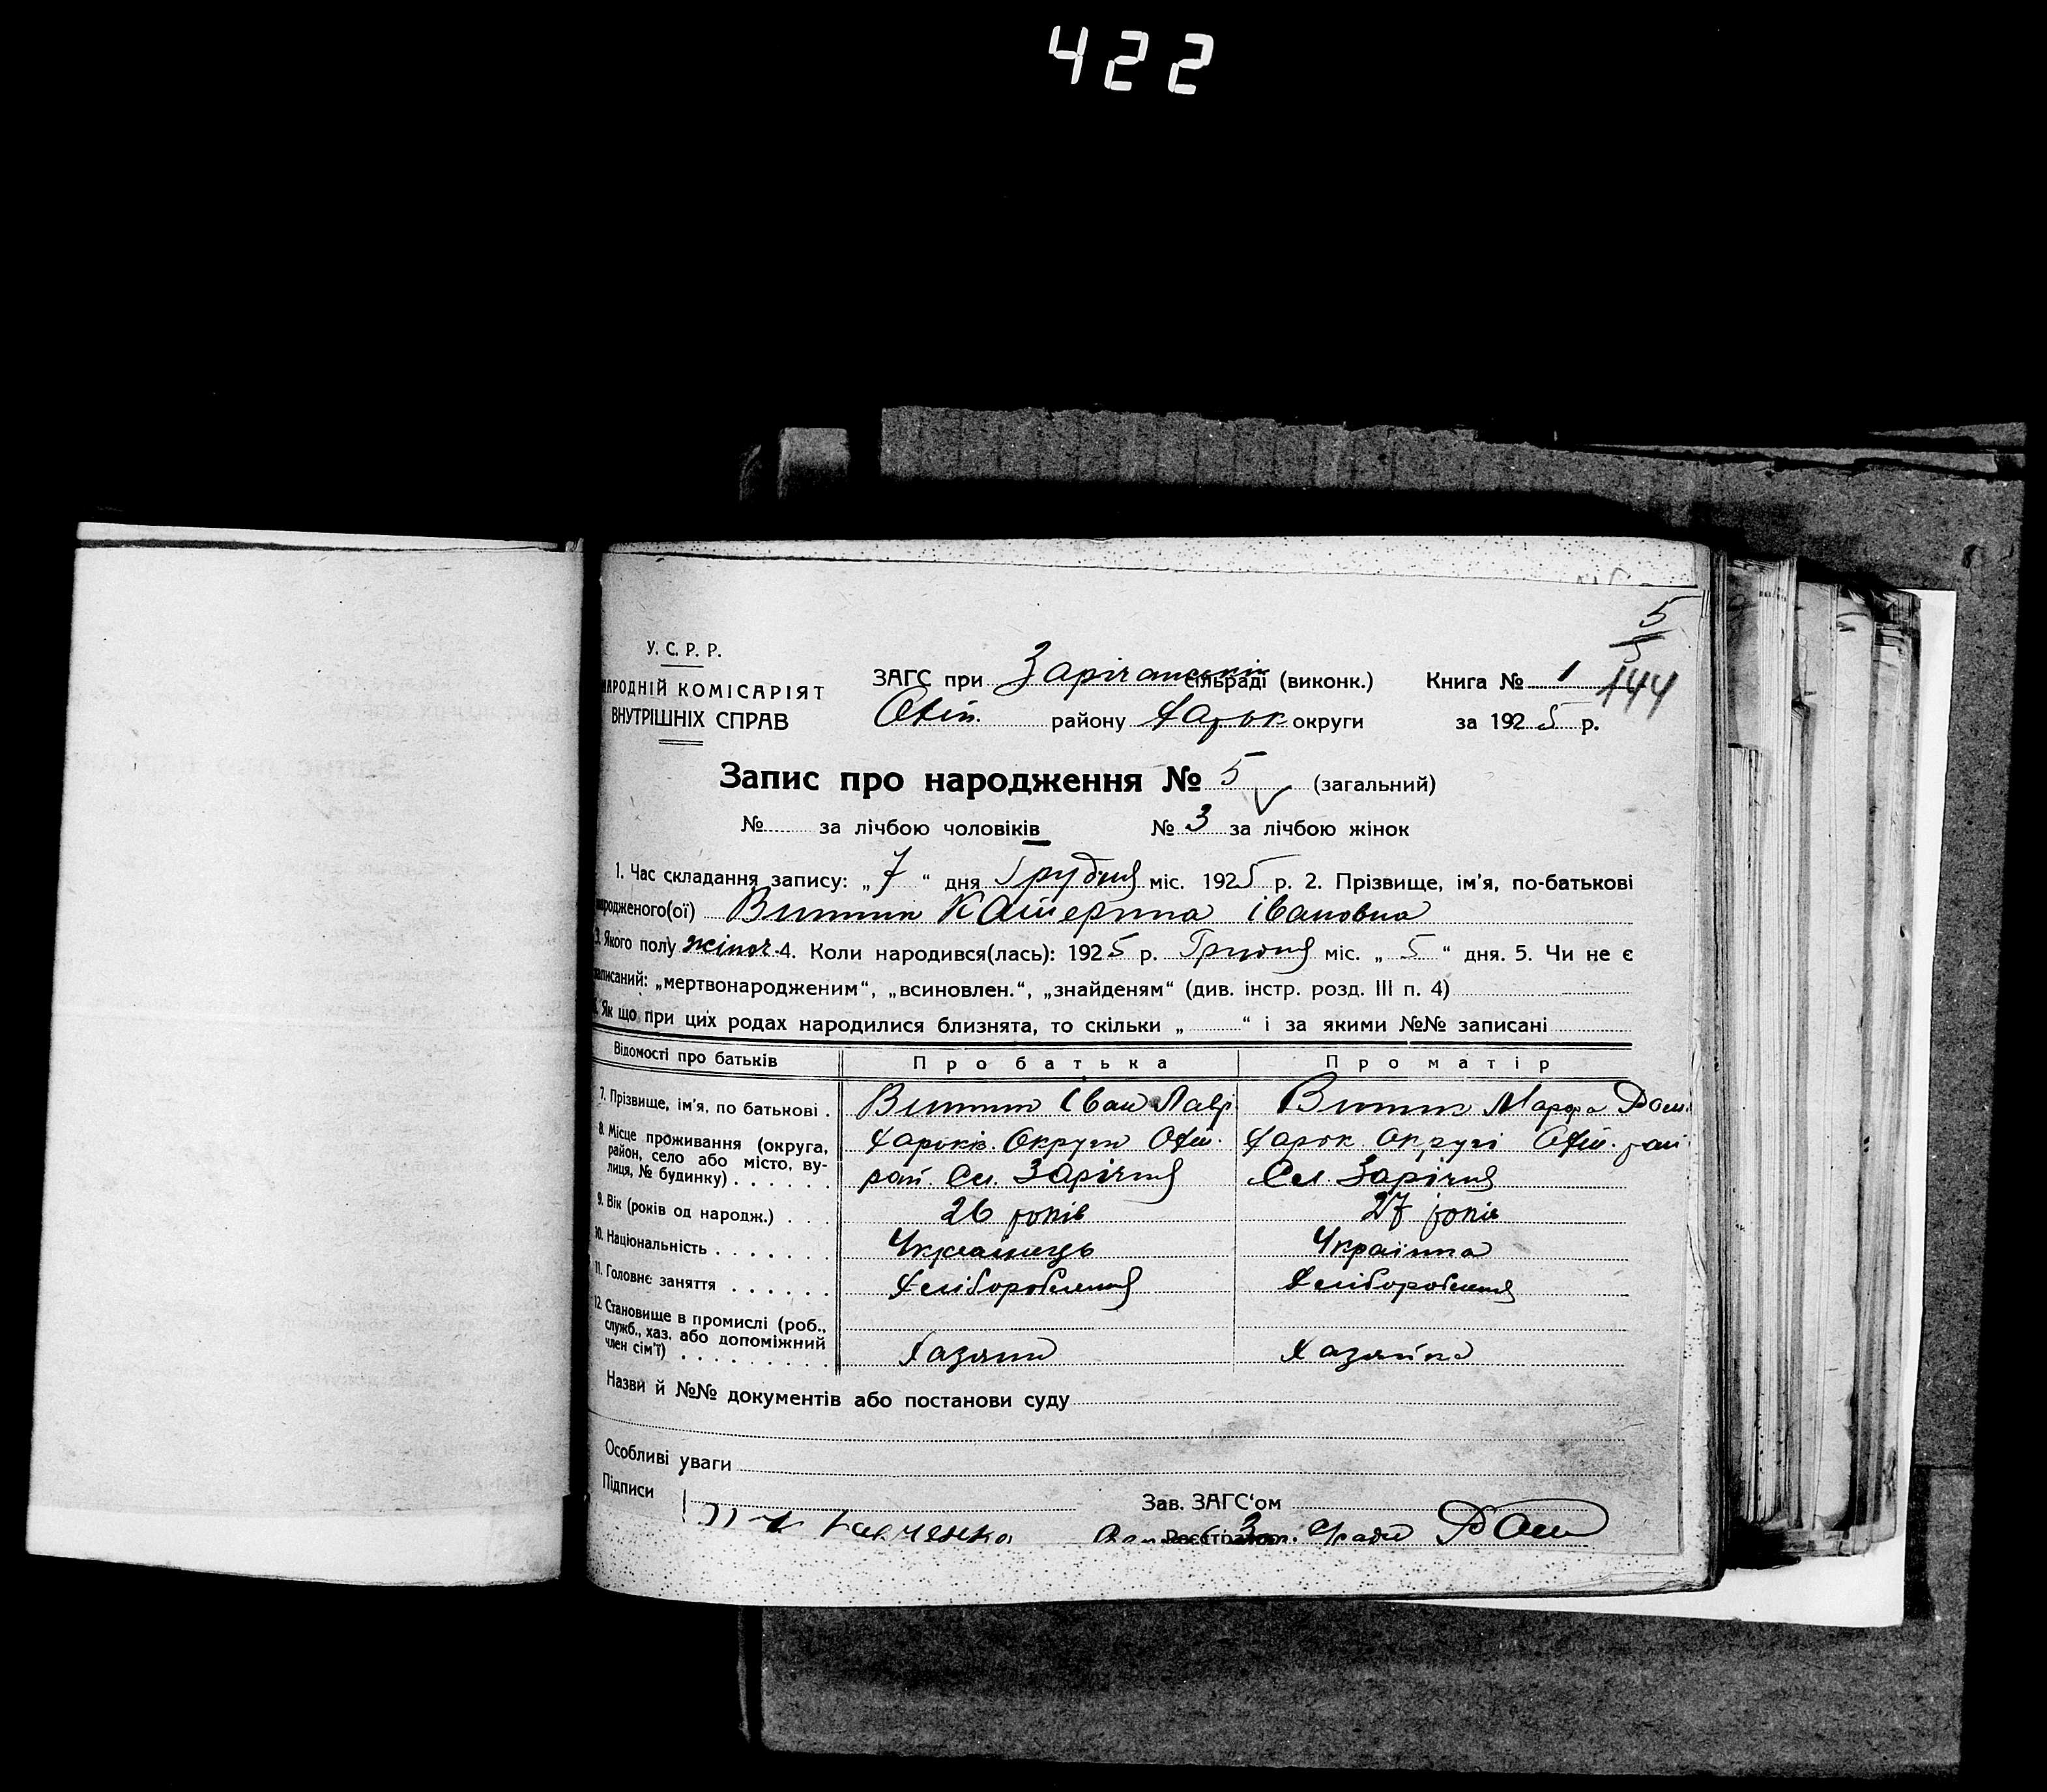 422
5
5
144
У. С. Р. Р.
НАРОДНІЙ КОМІСАРІЯТ
ВНУТРІШНІХ СПРАВ
ЗАГС при Зарічанській сільраді (виконк.) Книга № 1
району Харьк округи за 1925 р.
Запис про народження № 5 (загальний)
№ за лічбою чоловіків № 3 за лічбою жінок
1. Час складання запису: „7“ дня Грудня міс. 1925 р. 2. Прізвище, ім'я, по-батькові
народженого(ої) Катерина Івановна
3. Якого полу жіноч. 4. Коли народився(лась): 1925 р. Грудня міс. „5“ дня. 5. Чи не є
записаний: „мертвонародженим“, „всиновлен.“, „знайденям“ (див. інстр. розд. III п. 4)
6. Як що при цих родах народилися близнята, то скільки „ “ і за якими №№ записані
Відомості про батьків Про батька Про матір
7. Прізвище, ім'я, по батькові . Іван Лавр. Марфа
8. Місце проживання (округа, район, село або місто, вулиця, № будинку) . . . . . . Харків. Округи Харок. Округи рай.
рай. Сл. Зарічня Сл. Зарічня
9. Вік (років од народж.) . . . 26 років 27 років
10. Національність . . . . . . . Українець Українка
11. Головнє заняття . . . . . . Хліборобення Хліборобення
12. Становище в промислі (роб., служб., хаз. або допоміжний член сім'ї) . . . . . . . . . Хазяин Хазяйка
Назви й №№ документів або постанови суду
Особливі уваги
Підписи
Зав. ЗАГС'ом
Реєстратор